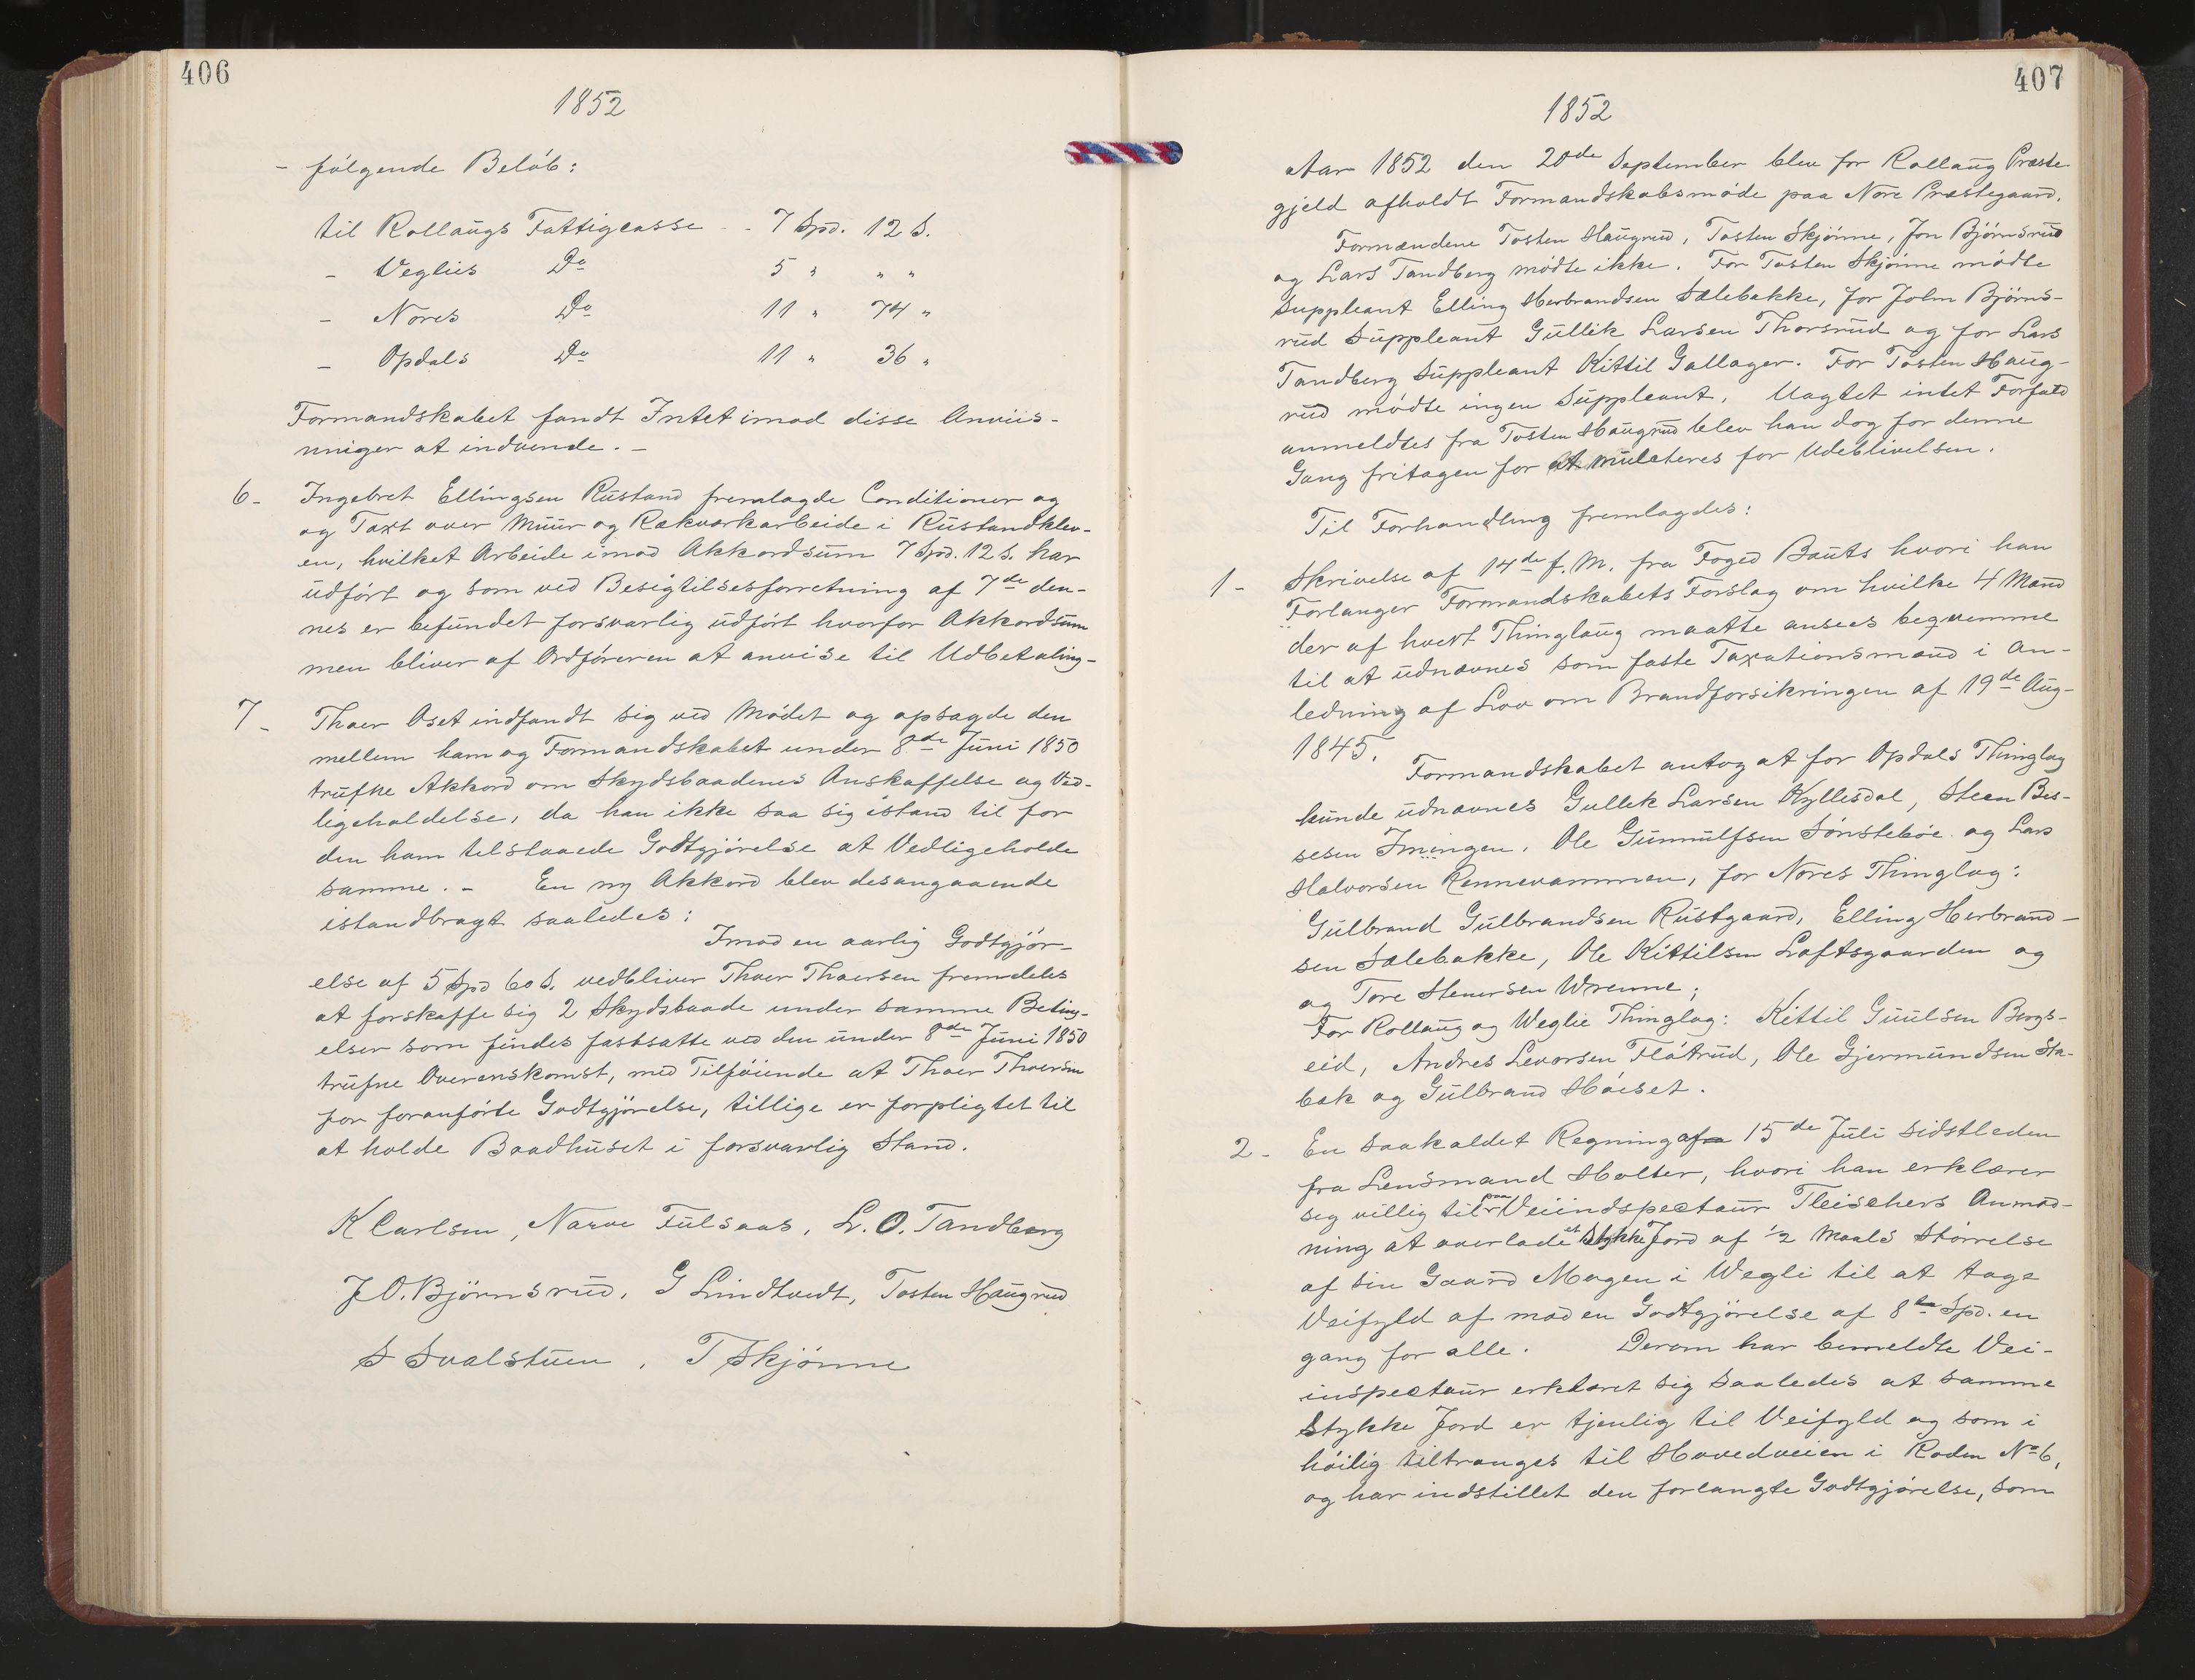 406
1852
- følgende Beløb:
til Rollaugs Fattigcasse - - 7 Spd. 12 S.
- Veglies Do 5 " " "
- Nores Do 11 " 74 "
- Opdals Do 11 " 36 "
Formandskabet fandt Intet imod disse Anviis-
ninger at indvende. -
6- Ingebret Ellingsen Rustand fremlagde Conditioner og
og Taxt over Muur og Rækværkarbeide i Rustandklev-
en, hvilket Arbeide imod Akkordsum 7 Spd. 12 S. har
udført og som ved Besigtilsesforretning af 7de den-
nes er befundet forsvarlig udført hvorfor Akkordsum
men bliver af Ordføreren at anvise til Udbetaling-
7- Thoer Aset indfandt sig ved Mødet og opsagde den
mellem ham og Formandskabet under 8de Juni 1850
trufne Akkord om Skydsbaadenes Anskaffelse og Ved-
ligeholdelse, da han ikke saa sig istand til for
den ham tilstaaede Godtgjørelse at Vedligeholde
samme. - En ny Akkord blev desangaaende
istandbragt saaledes:
Imod en aarlig Godtgjør-
else af 5 Spd 60 S. vedbliver Thoer Thoersen fremdeles
at forskaffe sig 2 Skydsbaade under samme Beting-
elser som findes fastsatte ved den under 8de Juni 1850
trufne Overenskomst, med Tilføiende at Thoer Thoersen
for foranførte Godtgjørelse, tillige er forpligtet til
at holde Baadhuset i forsvarlig Stand.
K Carlsen, Narve Fulsaas, L. O. Tandberg
J O. Bjørnsrud, G Lindtvedt, Tosten Haugrud
S Svalstuen, T Skjønne
407
1852
Aar 1852 den 20de September blev for Rollaug Præste
gjeld afholdt Formandskabsmøde paa Nore Præstegaard.
Formændene Tosten Haugrud, Tosten Skjønne, Jon Bjørnsrud
og Lars Tandberg mødte ikke. For Tosten Skjønne mødte
Suppleant Elling Herbrandsen Sælebakke, for John Bjørns-
rud Suppleant Gullik Larsen Thorsrud og for Lars
Tandberg Suppleant Kittil Gallager. For Tosten Haug-
rud mødte ingen Suppleant. Uagtet intet Forfald
anmeldtes fra Tosten Haugrud blev han dog for denne
Gang fritagen for at mulcteres for Udeblivelsen.
Til Forhandling fremlagdes:
1- Skrivelse af 14de f. M. fra Foged Bauts hvori han
Forlanger Formandskabets Forslag om hvilke 4 Mænd
der af hvert Thinglaug maatte ansees beqvemme
til at udnævnes som faste Taxationsmænd i An-
ledning af Lov om Brandforsikringen af 19de Aug-
1845.
Formandskabet antog at for Opdals Thinglag
kunde udnævnes Gullek Larsen Kyllesdal, Steen Bes-
sesen Imingen, Ole Gunnulfsen Sønstebøe og Lars
Halvorsen Rennevammen, for Nores Thinglag:
Gulbrand Gulbrandsen Rustgaard, Elling Herbrand-
sen Sælebakke, Ole Kittilsen Loftsgaarden og
og Tore Stenersen Wrenne;
For Rollaug og Weglie Thinglag: Kittil Guulsen Bergs-
eid, Andres Levorsen Flåtrud, Ole Gjermundsen Sta-
bæk og Gulbrand Høiset.
2- En saakaldet Regning af 15de Juli sidstleden
fra Lensmand Holter, hvori han erklærer
sig villig til paa Veiindspectaur Fleischers Anmod-
ning at overlade et Stykke Jord af ½ Maals Størrelse
af sin Gaard Mogen i Wegli til at tage
Veifyld af mod en Godtgjørelse af 8 Spd. en
gang for alle. Derom har bemeldte Vei-
inspectaur erklæret sig saaledes at samme
Stykke Jord er tjenlig til Veifyld og som i
høilig tiltrænges til Hovedveien i Roden No 6,
og har indstillet den forlangte Godtgjørelse, som